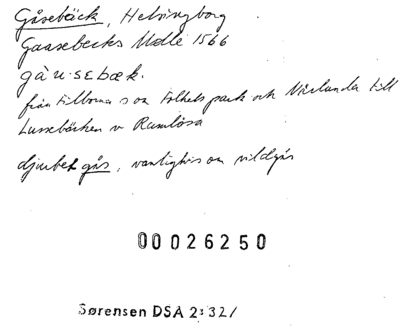 Gåsebäck, Helsingborg
Gaasebecks Mølle 1566
gåu·sebæk.
från tillborna s om Folkets park och Närlunda till
Lussebäcken v Ramlösa
djurbet gås, vanligtvis om vildgås
00026250
Sørensen DSA 2:32/